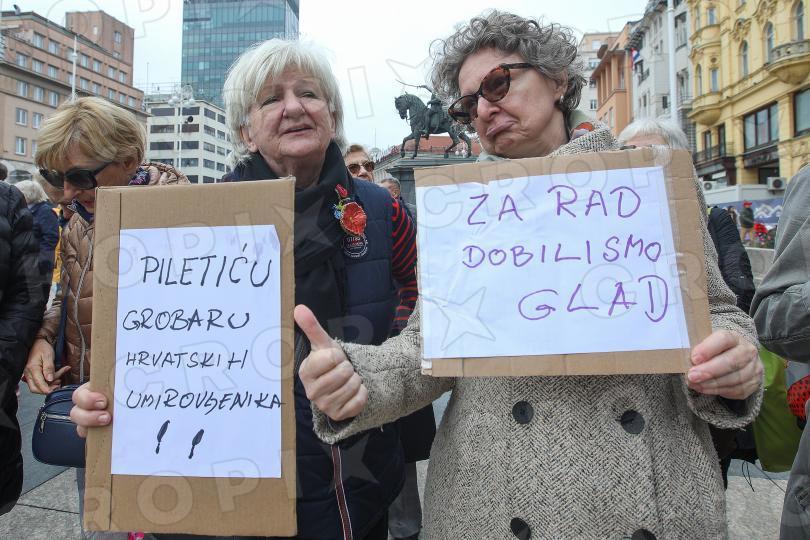 PILETIĆU
GROBARU
HRVATSKIH
UMIROVLJENIKA
!!
ZA RAD
DOBILISMO
GLAD